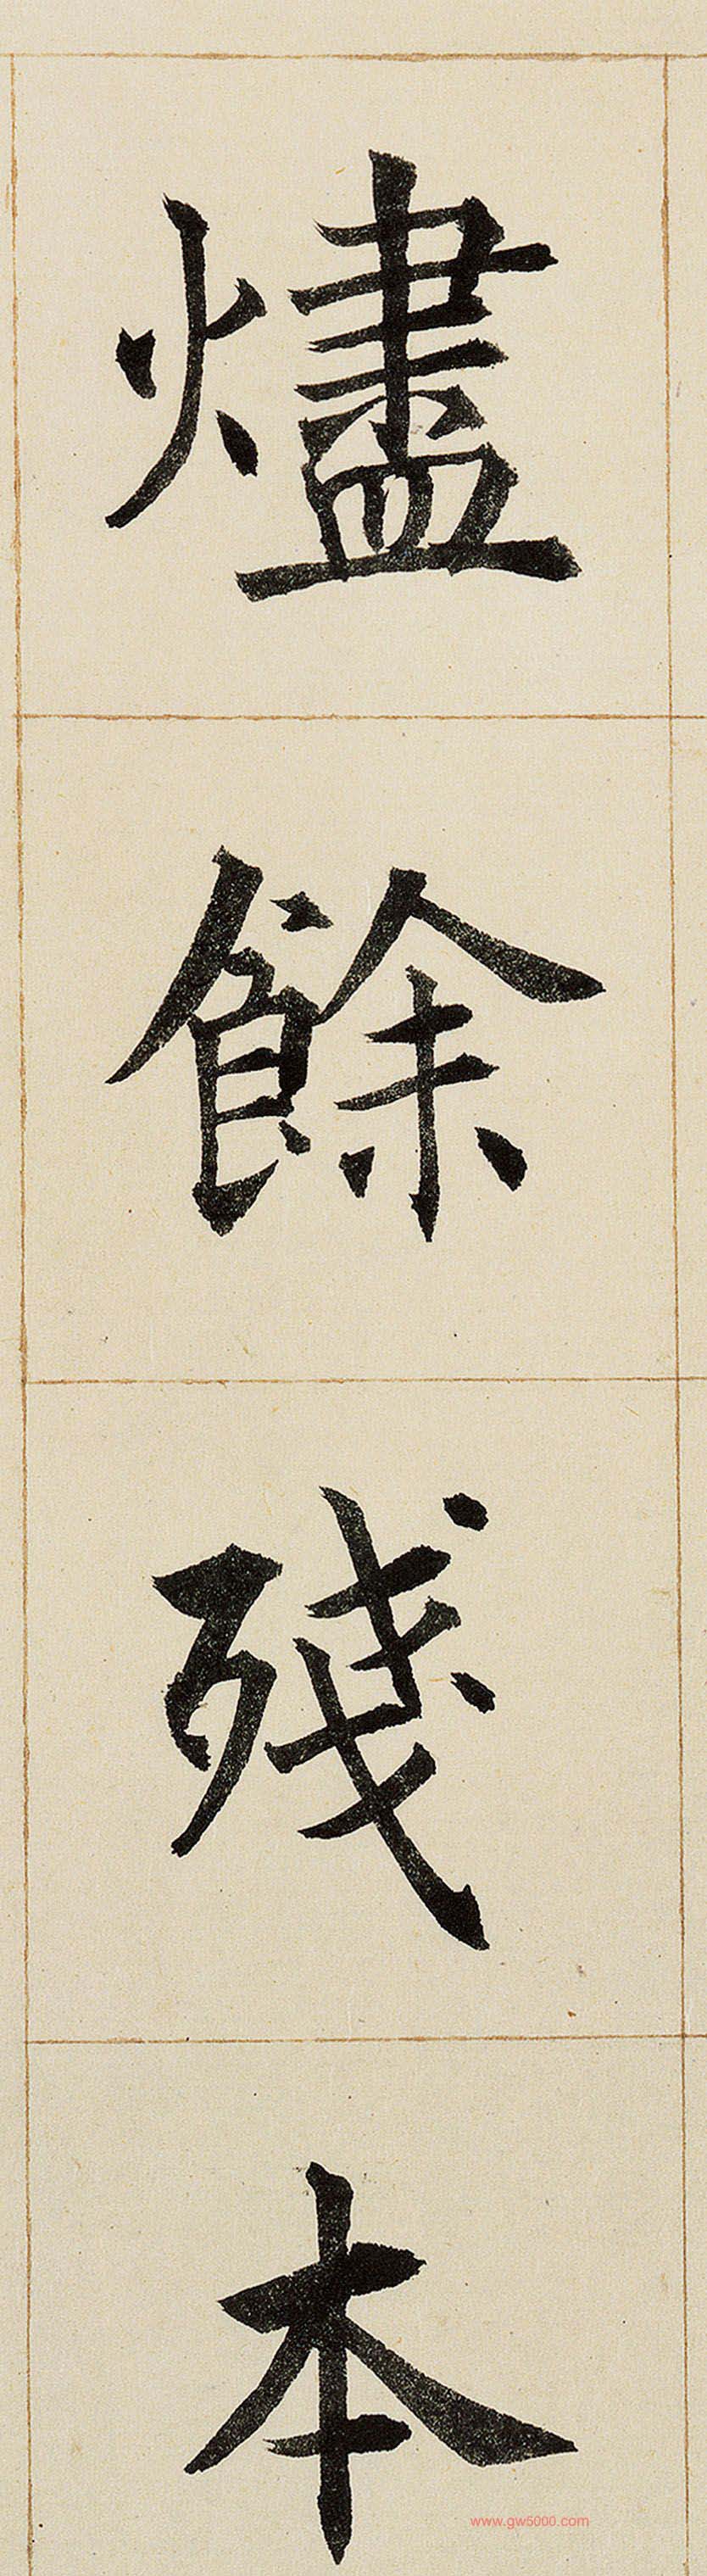 燼餘殘本
www.gw5000.com